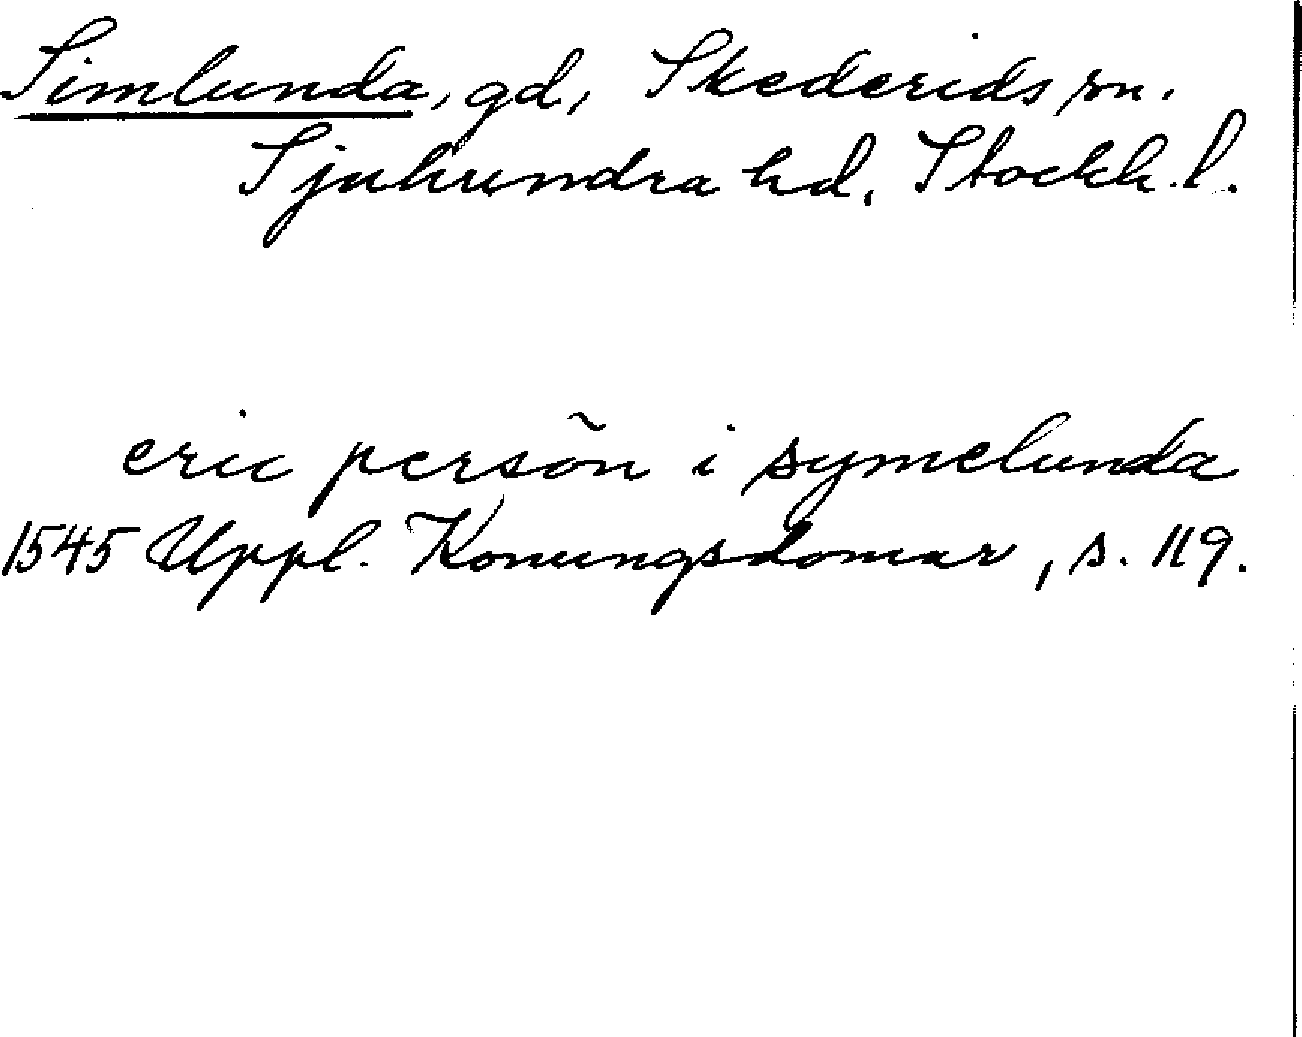 Simlunda, gd, Skederids sn.
Sjuhundra hd. Stockh. l.
eric persõn i symelunda
1545 Uppl. Konungsdomar, s. 119.